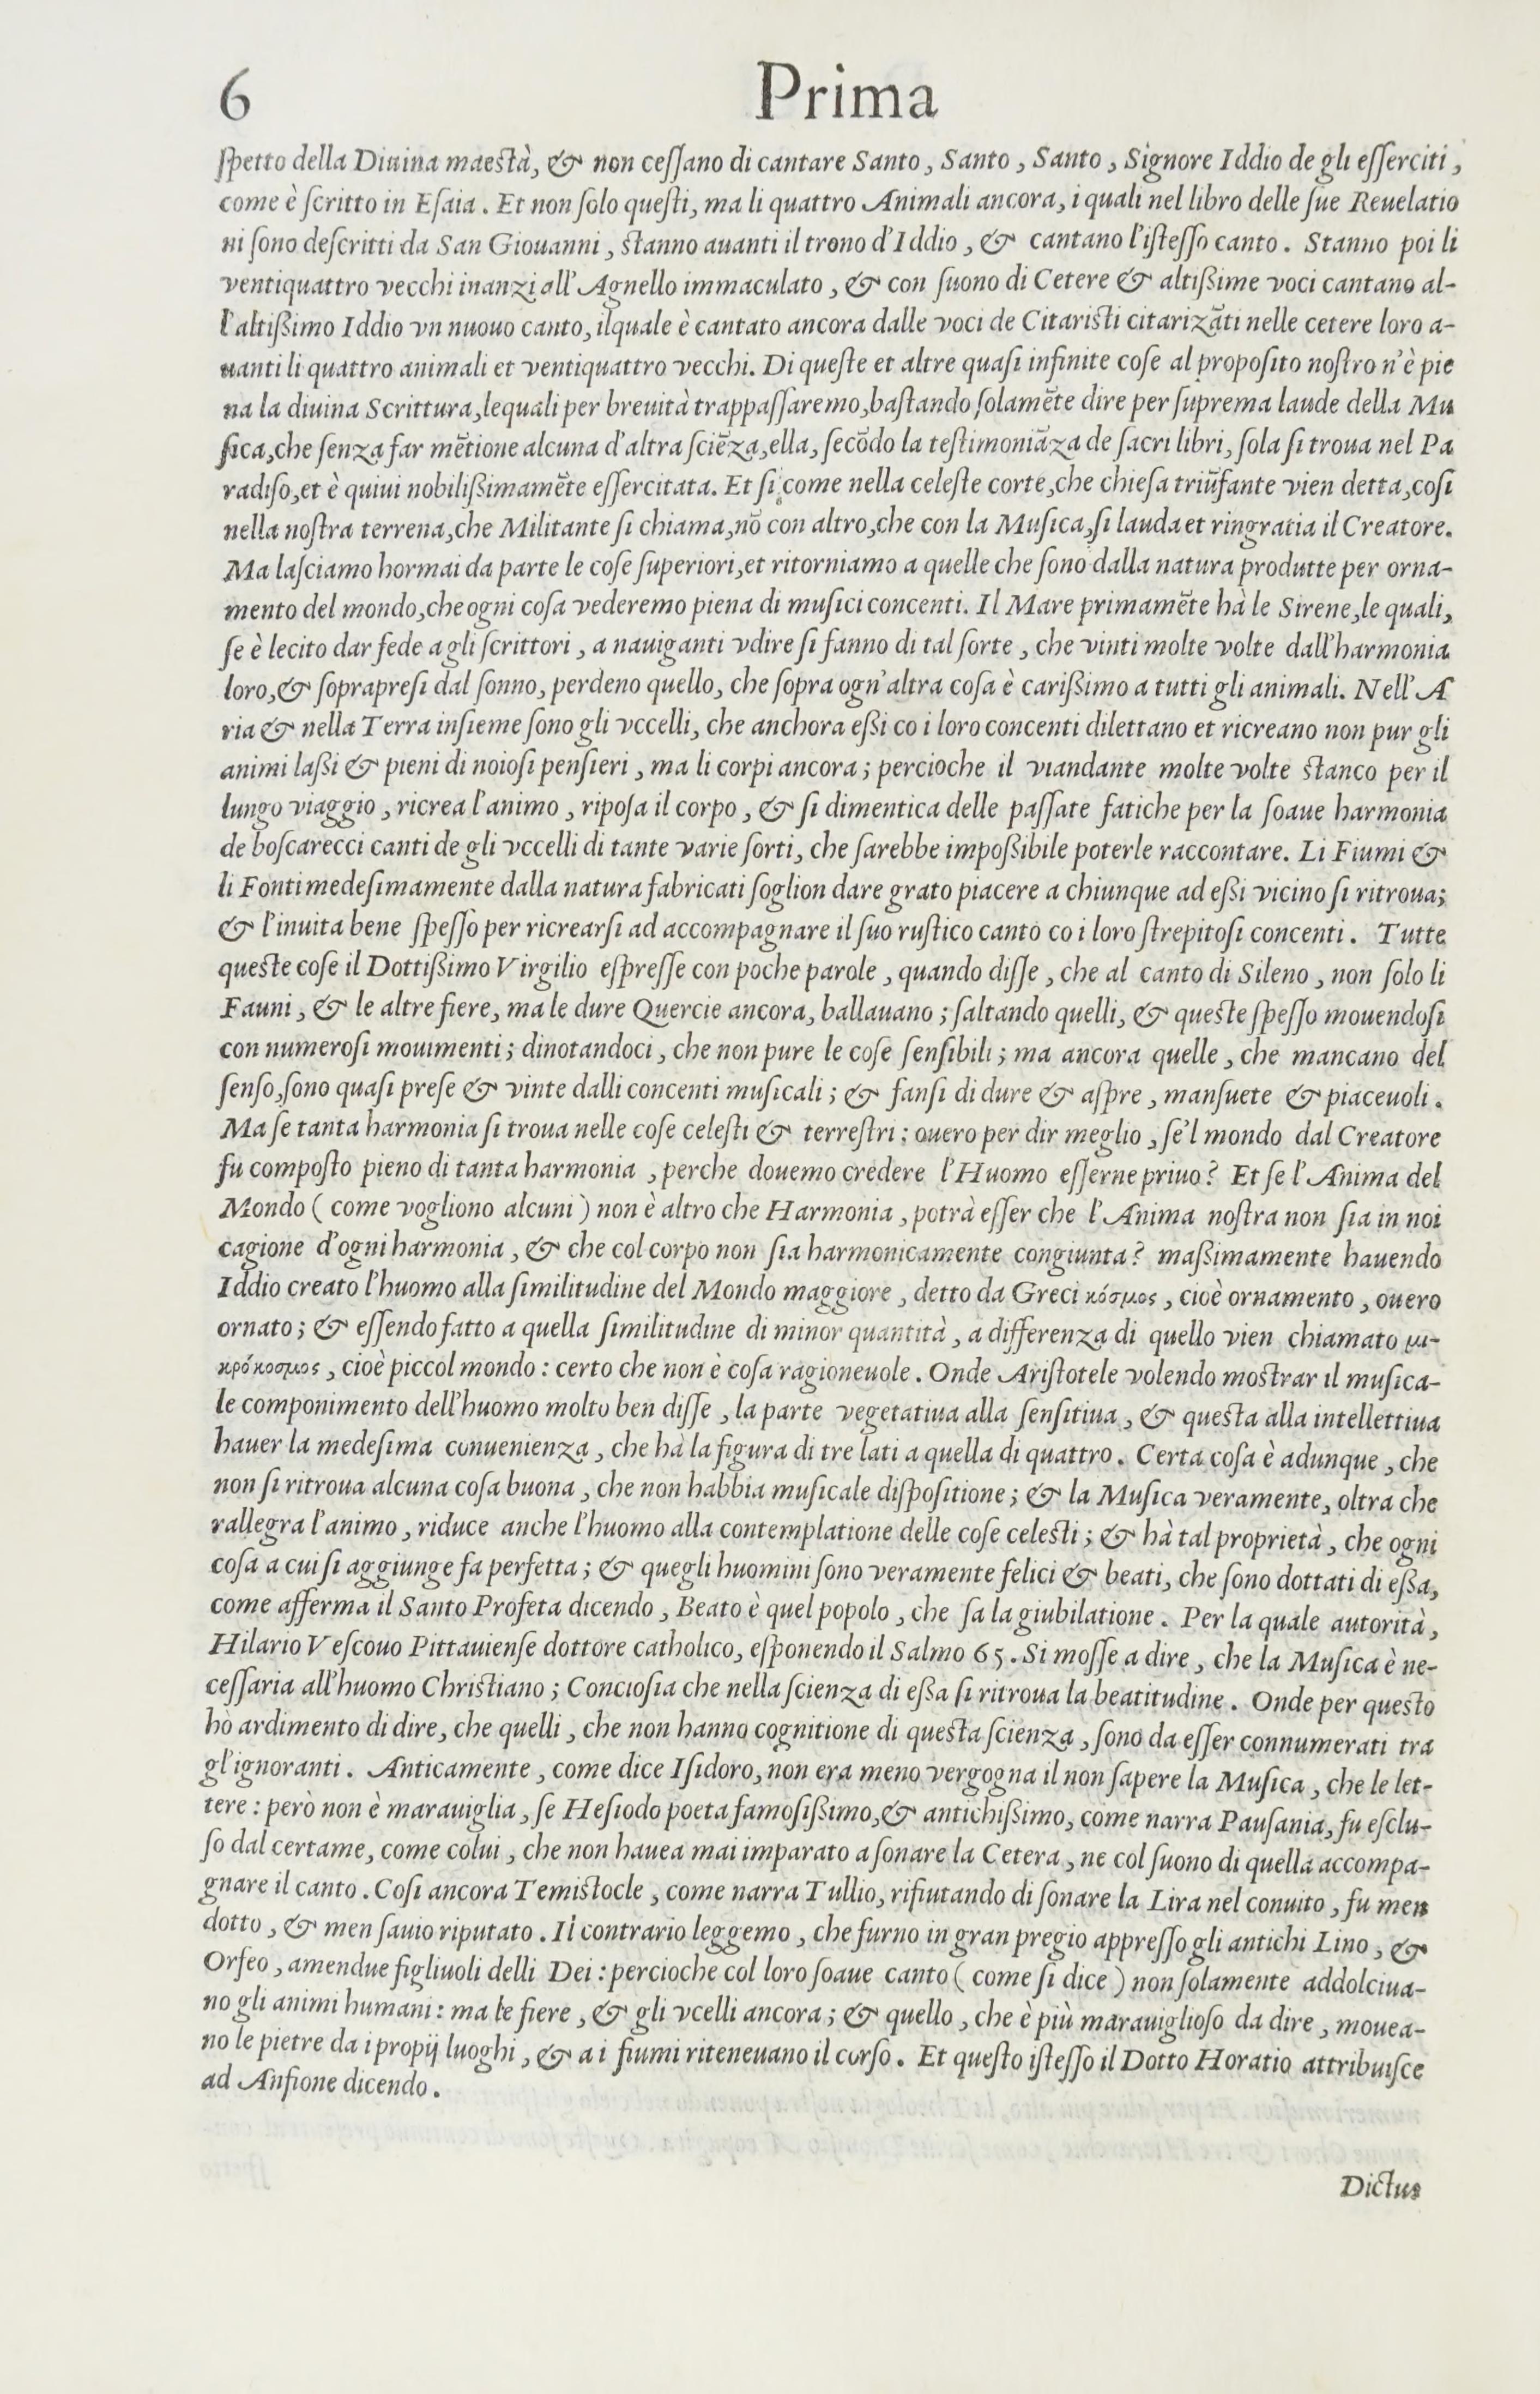 6 Prima
ſpetto della Diuina maeſtà, & non ceſſano di cantare Santo, Santo, Santo, Signore Iddio de gli eſſerciti,
come è ſcritto in Eſaia. Et non ſolo queſti, ma li quattro Animali ancora, i quali nel libro delle ſue Reuelatio
ni ſono deſcritti da San Giouanni, ſtanno auanti il trono d'Iddio, & cantano l'iſteſſo canto. Stanno poi li
ventiquattro vecchi inanzi all'Agnello immaculato, & con ſuono di Cetere & altißime voci cantano al-
l'altißimo Iddio vn nuouo canto, ilquale è cantato ancora dalle voci de Citariſti citarizãti nelle cetere loro a-
uanti li quattro animali et ventiquattro vecchi. Di queſte et altre quaſi infinite coſe al propoſito noſtro n'è pie
na la diuina Scrittura, lequali per breuità trappaſſaremo, baſtando ſolamẽte dire per ſuprema laude della Mu
ſica, che ſenza far mẽtione alcuna d'altra ſciẽza, ella, ſecõdo la teſtimoniãza de ſacri libri, ſola ſi troua nel Pa
radiſo, et è quiui nobilißimamẽte eſſercitata. Et ſi come nella celeſte corte, che chieſa triũfante vien detta, coſi
nella noſtra terrena, che Militante ſi chiama, nõ con altro, che con la Muſica, ſi lauda et ringratia il Creatore.
Ma laſciamo hormai da parte le coſe ſuperiori, et ritorniamo a quelle che ſono dalla natura produtte per orna-
mento del mondo, che ogni coſa vederemo piena di muſici concenti. Il Mare primamẽte hà le Sirene, le quali,
ſe è lecito dar fede a gli ſcrittori, a nauiganti vdire ſi fanno di tal ſorte, che vinti molte volte dall'harmonia
loro, & ſoprapreſi dal ſonno, perdeno quello, che ſopra ogn'altra coſa è carißimo a tutti gli animali. Nell'A
ria & nella Terra inſieme ſono gli vccelli, che anchora eßi co i loro concenti dilettano et ricreano non pur gli
animi laßi & pieni di noioſi penſieri, ma li corpi ancora; percioche il viandante molte volte ſtanco per il
lungo viaggio, ricrea l'animo, ripoſa il corpo, & ſi dimentica delle paſſate fatiche per la ſoaue harmonia
de boſcarecci canti de gli vccelli di tante varie ſorti, che ſarebbe impoßibile poterle raccontare. Li Fiumi &
li Fonti medeſimamente dalla natura fabricati ſoglion dare grato piacere a chiunque ad eßi vicino ſi ritroua;
& l'inuita bene ſpeſſo per ricrearſi ad accompagnare il ſuo ruſtico canto co i loro ſtrepitoſi concenti. Tutte
queſte coſe il Dottißimo Virgilio eſpreſſe con poche parole, quando diſſe, che al canto di Sileno, non ſolo li
Fauni, & le altre fiere, ma le dure Quercie ancora, ballauano; ſaltando quelli, & queſte ſpeſſo mouendoſi
con numeroſi mouimenti; dinotandoci, che non pure le coſe ſenſibili; ma ancora quelle, che mancano del
ſenſo, ſono quaſi preſe & vinte dalli concenti muſicali; & fanſi di dure & aſpre, manſuete & piaceuoli.
Ma ſe tanta harmonia ſi troua nelle coſe celeſti & terreſtri: ouero per dir meglio, ſe'l mondo dal Creatore
fu compoſto pieno di tanta harmonia, perche douemo credere l'Huomo eſſerne priuo? Et ſe l'Anima del
Mondo (come vogliono alcuni) non è altro che Harmonia, potrà eſſer che l'Anima noſtra non ſia in noi
cagione d'ogni harmonia, & che col corpo non ſia harmonicamente congiunta? maßimamente hauendo
Iddio creato l'huomo alla ſimilitudine del Mondo maggiore, detto da Greci κόσμος, cioè ornamento, ouero
ornato; & eſſendo fatto a quella ſimilitudine di minor quantità, a differenza di quello vien chiamato μι-
κρόκοσμος, cioè piccol mondo: certo che non è coſa ragioneuole. Onde Ariſtotele volendo moſtrar il muſica-
le componimento dell'huomo molto ben diſſe, la parte vegetatiua alla ſenſitiua, & queſta alla intellettiua
hauer la medeſima conuenienza, che hà la figura di tre lati a quella di quattro. Certa coſa è adunque, che
non ſi ritroua alcuna coſa buona, che non habbia muſicale diſpoſitione; & la Muſica veramente, oltra che
rallegra l'animo, riduce anche l'huomo alla contemplatione delle coſe celeſti; & hà tal proprietà, che ogni
coſa a cui ſi aggiunge fa perfetta; & quegli huomini ſono veramente felici & beati, che ſono dottati di eßa,
come afferma il Santo Profeta dicendo, Beato è quel popolo, che ſa la giubilatione. Per la quale autorità,
Hilario Veſcouo Pittauienſe dottore catholico, eſponendo il Salmo 65. Si moſſe a dire, che la Muſica è ne-
ceſſaria all'huomo Chriſtiano; Concioſia che nella ſcienza di eßa ſi ritroua la beatitudine. Onde per queſto
hò ardimento di dire, che quelli, che non hanno cognitione di queſta ſcienza, ſono da eſſer connumerati tra
gl'ignoranti. Anticamente, come dice Iſidoro, non era meno vergogna il non ſapere la Muſica, che le let-
tere: però non è marauiglia, ſe Heſiodo poeta famoſißimo, & antichißimo, come narra Pauſania, fu eſclu-
ſo dal certame, come colui, che non hauea mai imparato a ſonare la Cetera, ne col ſuono di quella accompa-
gnare il canto. Coſi ancora Temiſtocle, come narra Tullio, rifiutando di ſonare la Lira nel conuito, fu men
dotto, & men ſauio riputato. Il contrario leggemo, che furno in gran pregio appreſſo gli antichi Lino, &
Orfeo, amendue figliuoli delli Dei: percioche col loro ſoaue canto (come ſi dice) non ſolamente addolciua-
no gli animi humani: ma le fiere, & gli vcelli ancora; & quello, che è più marauiglioſo da dire, mouea-
no le pietre da i propij luoghi, & a i fiumi riteneuano il corſo. Et queſto iſteſſo il Dotto Horatio attribuiſce
ad Anfione dicendo.
Dictus